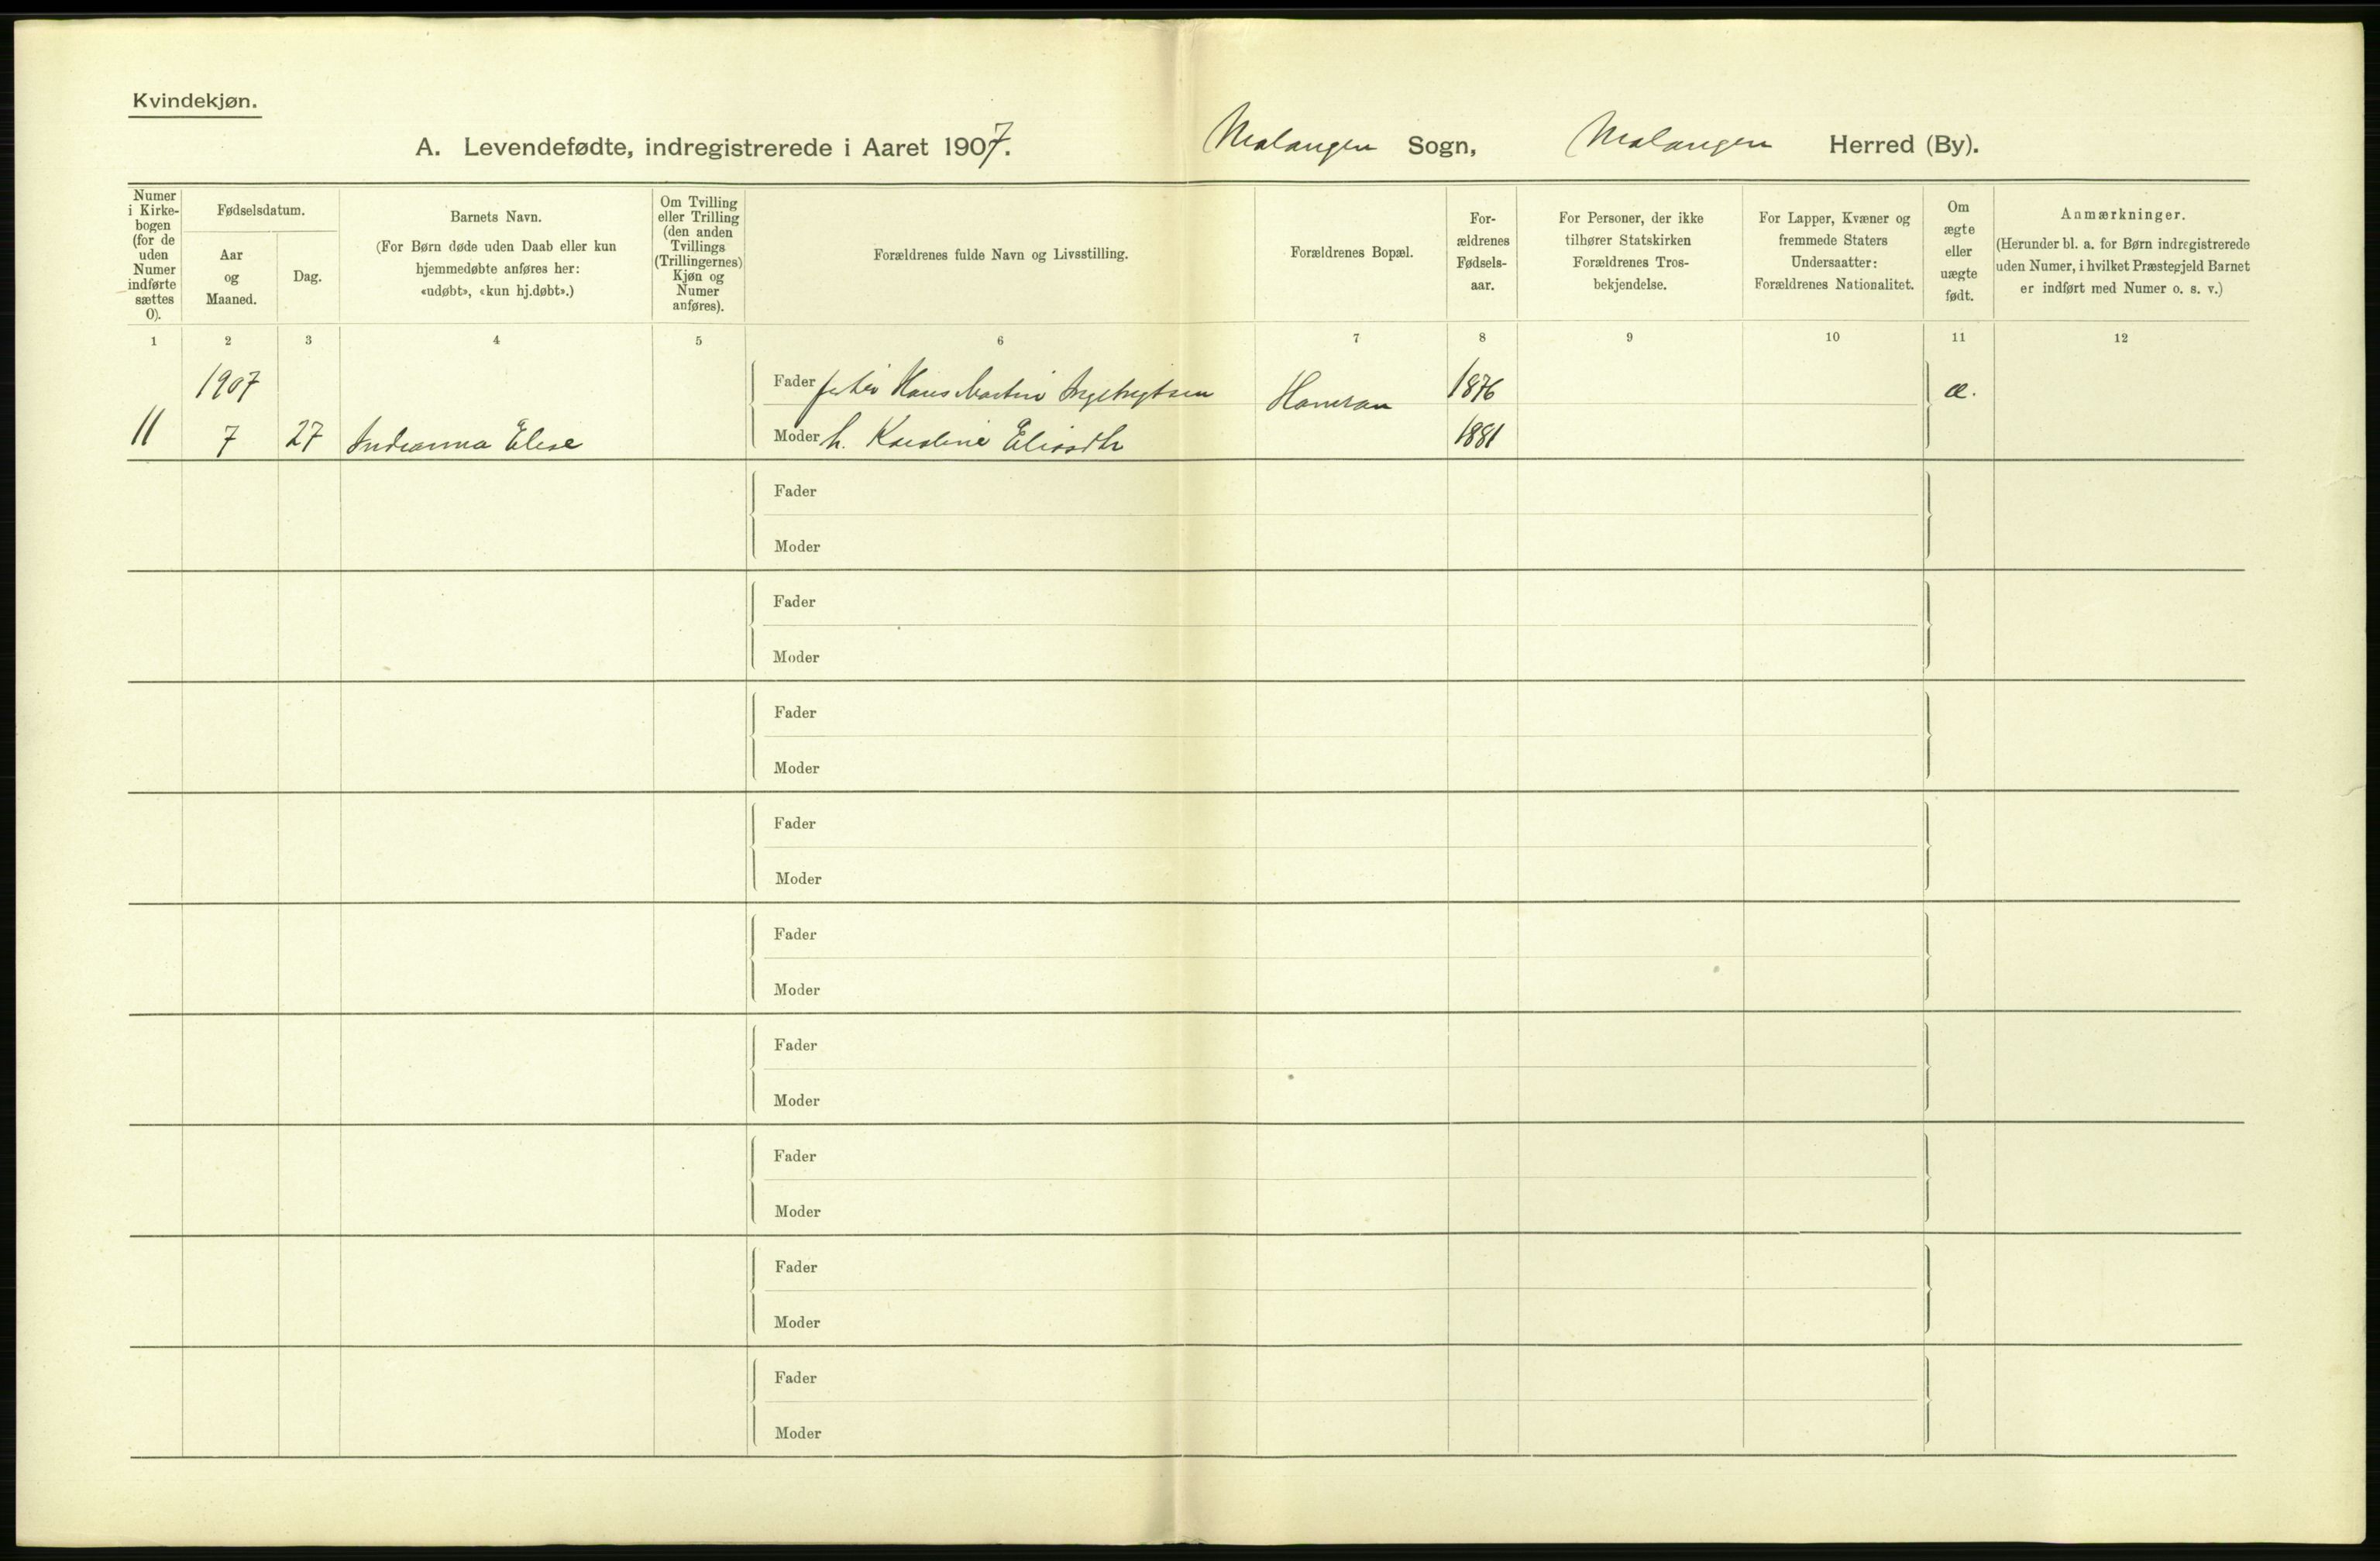 Kvindekjøn.
A. Levendefødte, indregistrerede i Aaret 1907. Malangen Sogn, Malangen Herred (By).
Numer
i Kirke-
bogen
(for de
uden
Numer
indførte
sættes
0).
Fødselsdatum.
Aar
og
Maaned.
Dag.
Barnets Navn.
(For Børn døde uden Daab eller kun
hjemmedøbte anføres her:
«udøbt», «kun hj.døbt».)
Om Tvilling
eller Trilling
(den anden
Tvillings
(Trillingernes)
Kjøn og
Numer
anføres).
Forældrenes fulde Navn og Livsstilling.
Forældrenes Bopæl.
For-
ældrenes
Fødsels-
aar.
For Personer, der ikke
tilhører Statskirken
Forældrenes Tros-
bekjendelse.
For Lapper, Kvæner og
fremmede Staters
Undersaatter:
Forældrenes Nationalitet.
Om
ægte
eller
uægte
født.
Anmærkninger.
(Herunder bl. a. for Børn indregistrerede
uden Numer, i hvilket Præstegjeld Barnet
er indført med Numer o. s. v.)
1 2 3 4 5 6 7 8 9 10 11 12
1907 Fader Hans Martin 1876 æ.
11 7 27 Elise Moder h. Karoline 1881
Fader
Moder
Fader
Moder
Fader
Moder
Fader
Moder
Fader
Moder
Fader
Moder
Fader
Moder
Fader
Moder
Fader
Moder